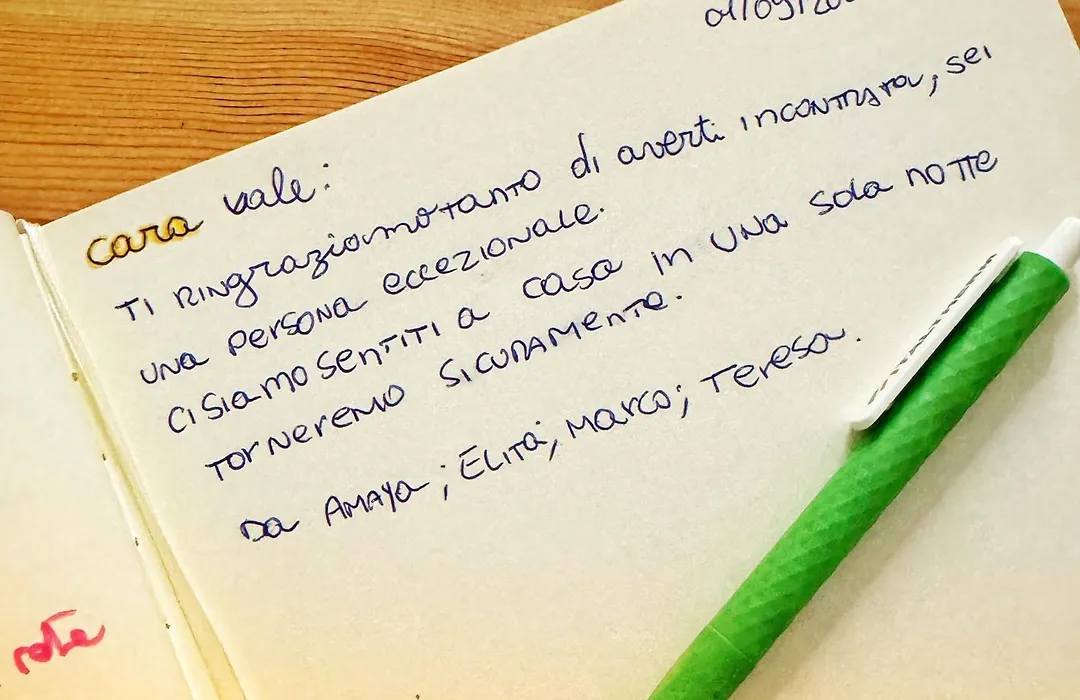 01/09/20
cara vale:
TI RINgraziamo tanto di averti incontrara, sei
UNA persona eccezionale.
Ci Siamo SenTITI a casa in UNA sola noTTe
TorNeremo SicuramenTe.
Da AMAYA; ELITA; Marco; Teresa.